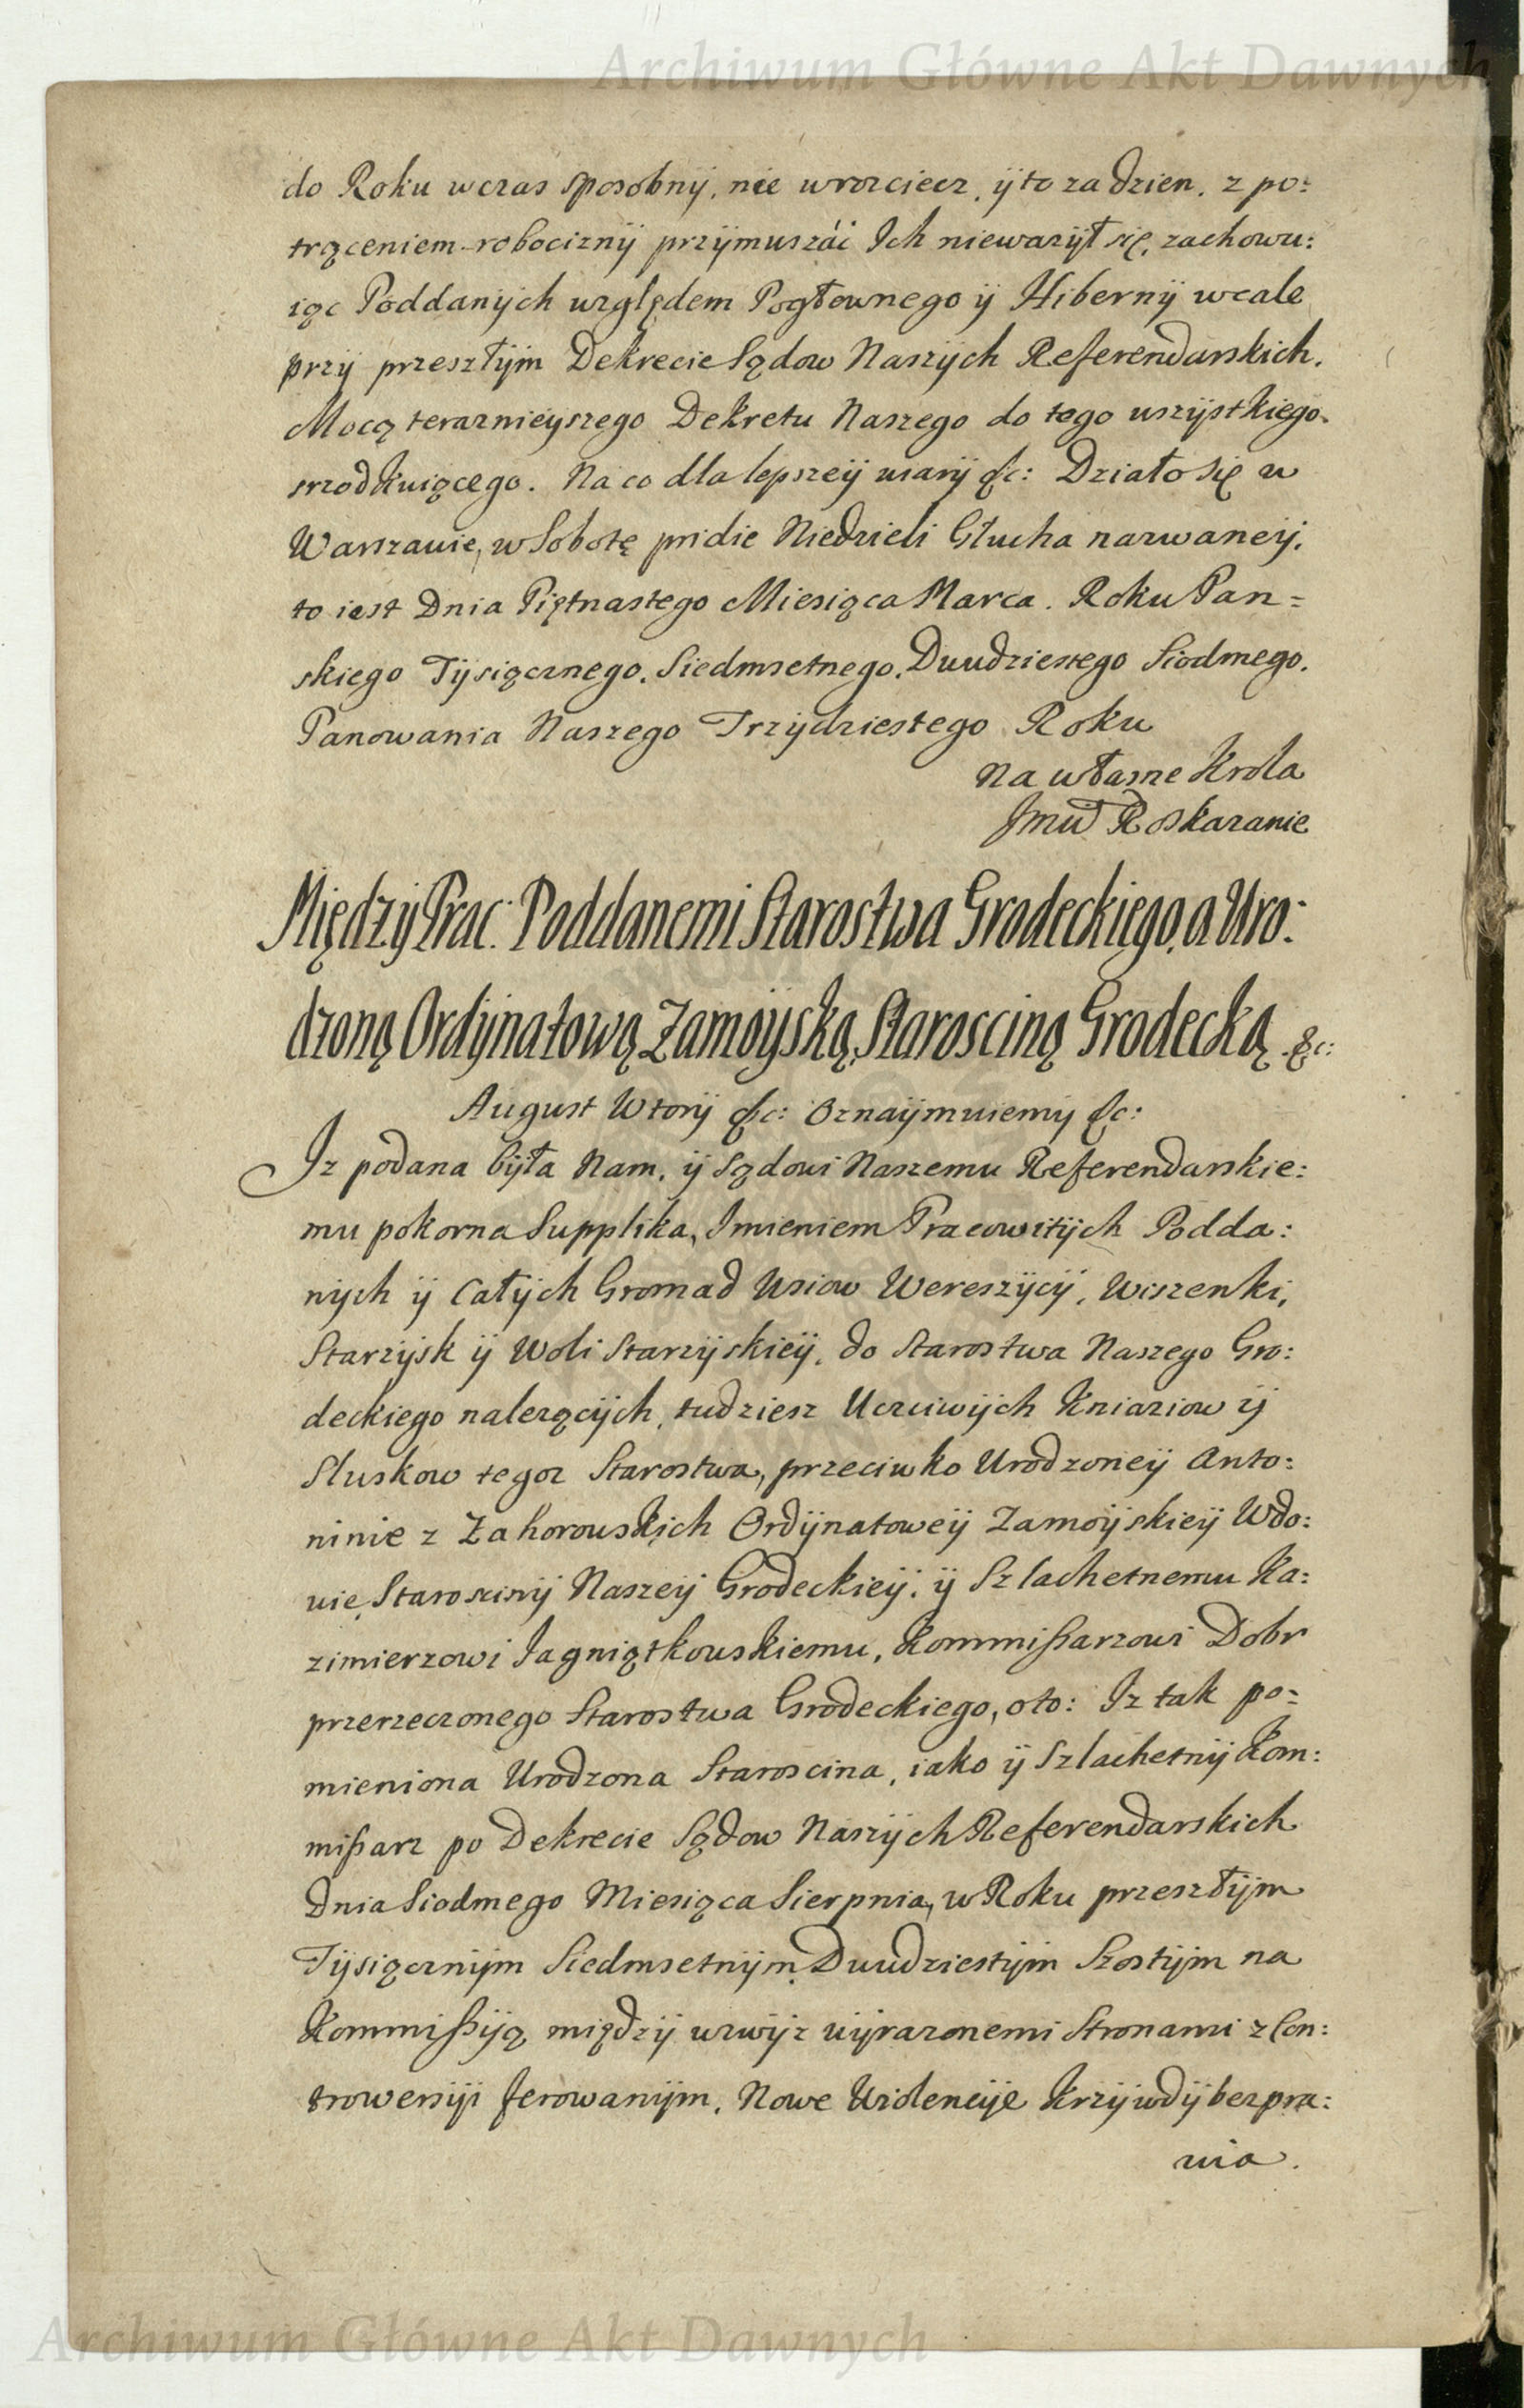 Archiwum Główne Akt Dawnych
do Roku wczas sposobnÿ, nie wrozciecz, ÿ to za dzien, z po:
trąceniem robociznÿ przÿmuszáć Ich niewazÿł się, zachowu:
iąc Poddanÿch względem Pogłownego ÿ Hibernÿ wcale
przÿ przeszłÿm Dekrecie Sądow Naszÿch Referendarskich.
Mocą teraznieÿszego Dekretu Naszego do tego wszÿstkiego
srzodkuiącego. Na co dla lepszeÿ wiarÿ &c: Działo się w
Warszawie, w Sobotę pridie Niedzieli Głucha nazwaneÿ,
to iest Dnia Piętnastego Miesiąca Marca. Roku Pan=
skiego Tÿsiącznego. Siedmsetnego. Dwudziestego Siodmego.
Panowania Naszego Trzÿdziestego Roku
Na własne Krola
Jmci Roskazanie
MiędzÿPrac: Poddanemi Starostwa Grodeckięgo, a Uro:
dzoną Ordÿnatową Zamoÿską, Starosciną Grodecką &c:
August Wtorÿ &c: Oznaÿmuiemÿ &c:
Iz podana bÿła Nam, ÿ Sądowi Naszemu Referendarskie:
mu pokorna Supplika, Imieniem Pracowitÿch Podda:
nÿch ÿ Całÿch Gromad Wsiow Wereszÿcÿ, Wiszenki,
Starzÿsk ÿ Woli Starzÿskieÿ, do Starostwa Naszego Gro:
deckiego nalezącÿch, tudziesz Uczciwÿch Kniaziow ÿ
Sluskow tegoz Starostwa, przeciwko Urodzoneÿ Anto:
ninie z Zahorowskich Ordÿnatoweÿ Zamoÿskieÿ Wdo:
wie, Staroscinÿ Naszeÿ Grodeckieÿ, ÿ Szlachetnemu Ka:
zimierzowi Jagniątkowskiemu, Kommißarzowi Dobr
przerzeczonego Starostwa Grodeckiego, oto: Iz tak po:
mieniona Urodzona Staroscina, iako ÿ Szlachetnÿ Kom:
mißarz po Dekrecie Sądow Naszÿch Referendarskich
Dnia Siodmego Miesiąca Sierpnia, w Roku przeszłÿm
Tÿsiącznÿm Siedmsetnÿm Dwudziestÿm Szostÿm na
Kommißÿą międzÿ wzwÿz wÿrazonemi Stronami z Con:
trowersÿi ferowanÿm, Nowe Wiolencÿe Krzÿwdÿ bezpra:
wia.
Archiwum Główne Akt Dawnych